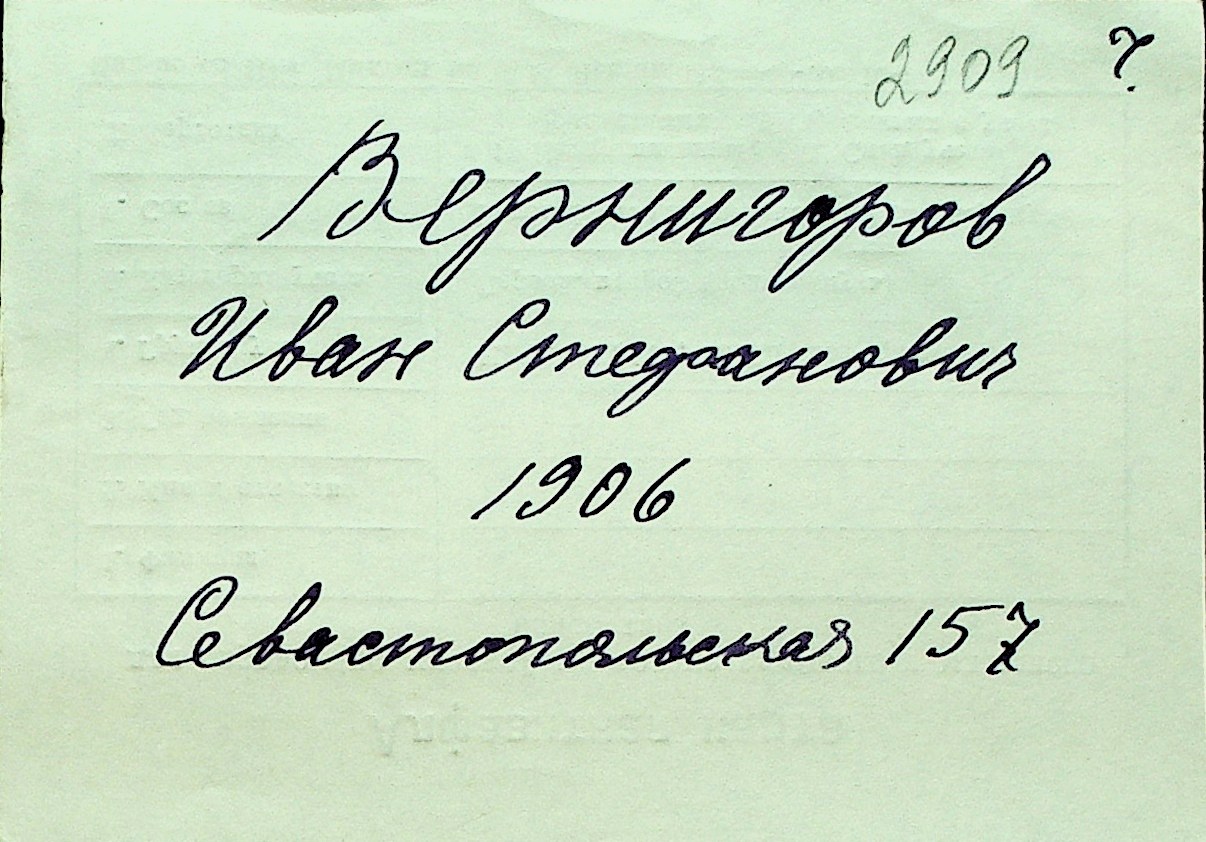 2909 ?
Вернигоров
Иван Стефанович
1906
Севастопольская 157